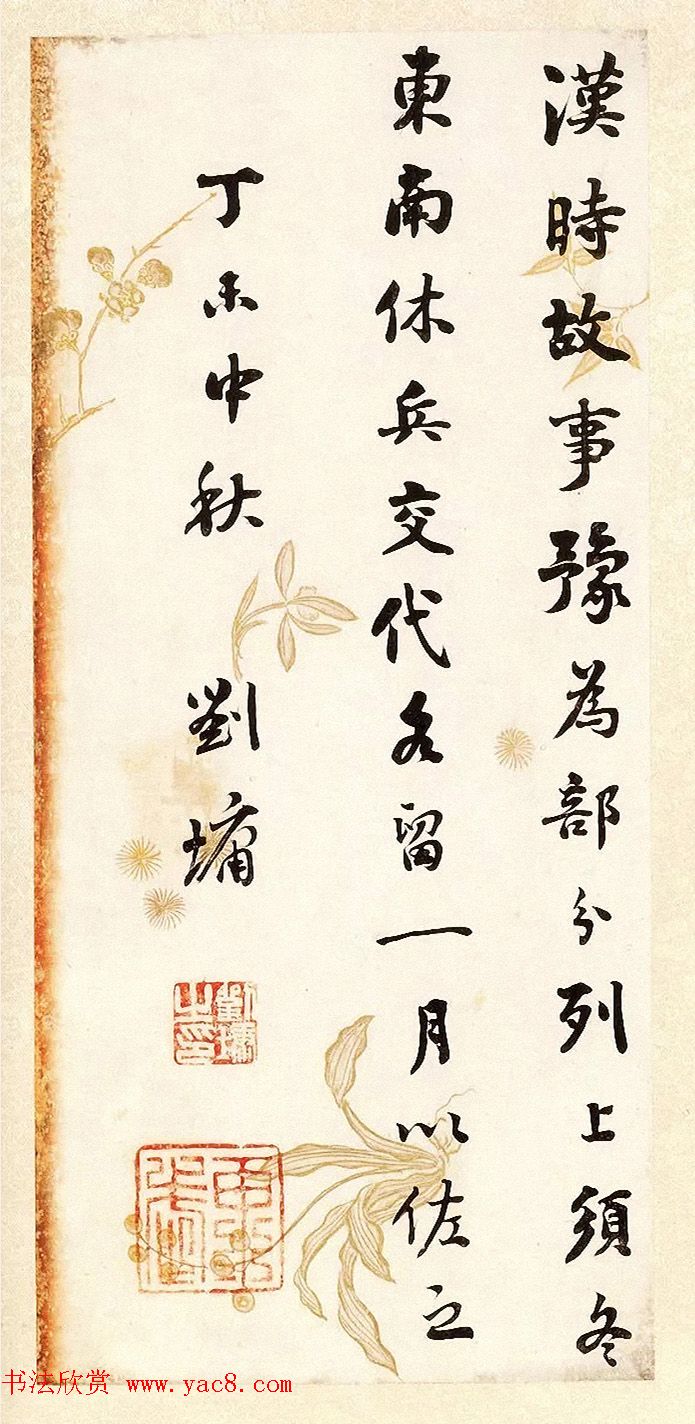 漢時故事豫為部分列上須冬
東南休兵交代各留一月以佐之
丁未中秋 劉墉
劉墉之印
书法欣赏 www.yac8.com